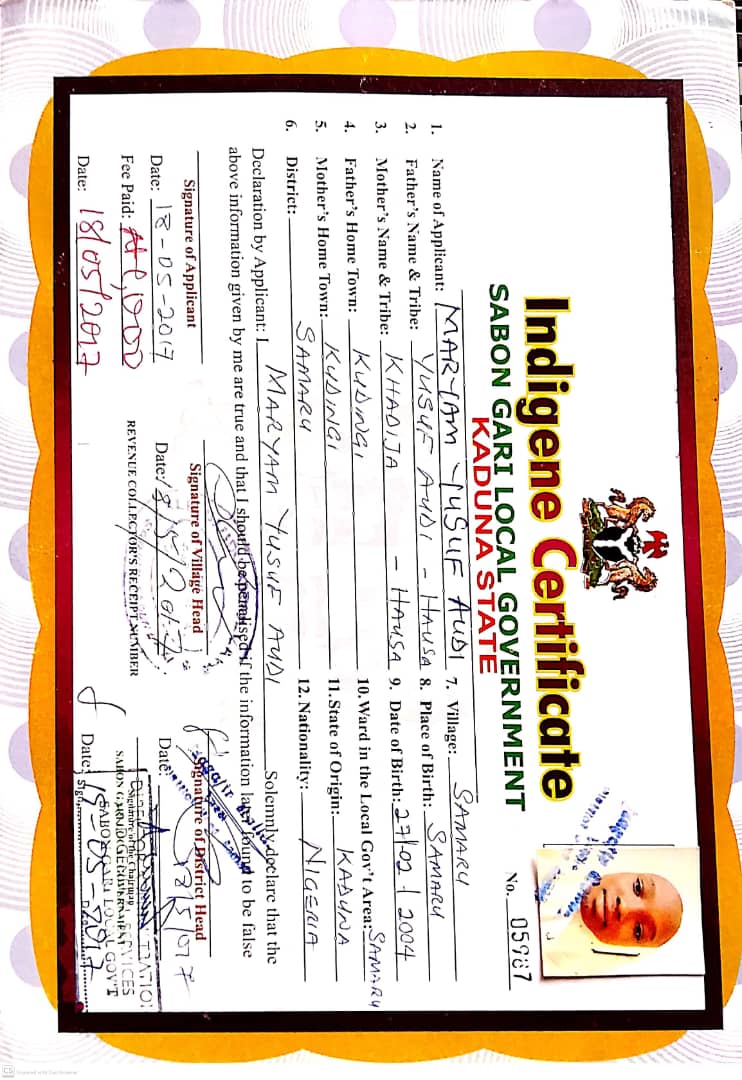 Indigene Certificate
SABON GARI LOCAL GOVERNMENT
KADUNA STATE
No. 05987
1. Name of Applicant: MARYAM YUSUF AUDI
2. Father's Name & Tribe: YUSUF AUDI - HAUSA
3. Mother's Name & Tribe: KHADIJA - HAUSA
4. Father's Home Town: KUDINGI
5. Mother's Home Town: KUDINGI
6. District: SAMARU
7. Village: SAMARU
8. Place of Birth: SAMARU
9. Date of Birth: 27/02/2004
10. Ward in the Local Gov't Area: SAMARU
11. State of Origin: KADUNA
12. Nationality: NIGERIA
Declaration by Applicant: I MARYAM YUSUF AUDI Solemnly declare that the
above information given by me are true and that I should be penalised if the information later found to be false
Signature of Applicant
Date: 18-05-2017
Signature of Village Head
Date: 18/5/2017
Signature of District Head
Date: 18/5/017
Fee Paid: ₦1,000
REVENUE COLLECTOR'S RECEIPT NUMBER
Date: 18/05/2017
Signature of the Chairman
SABON GARI LOCAL GOVERNMENT
SERVICES
SABON GARI LOCAL GOV'T
Sign
Date: 19-05-2017
CS